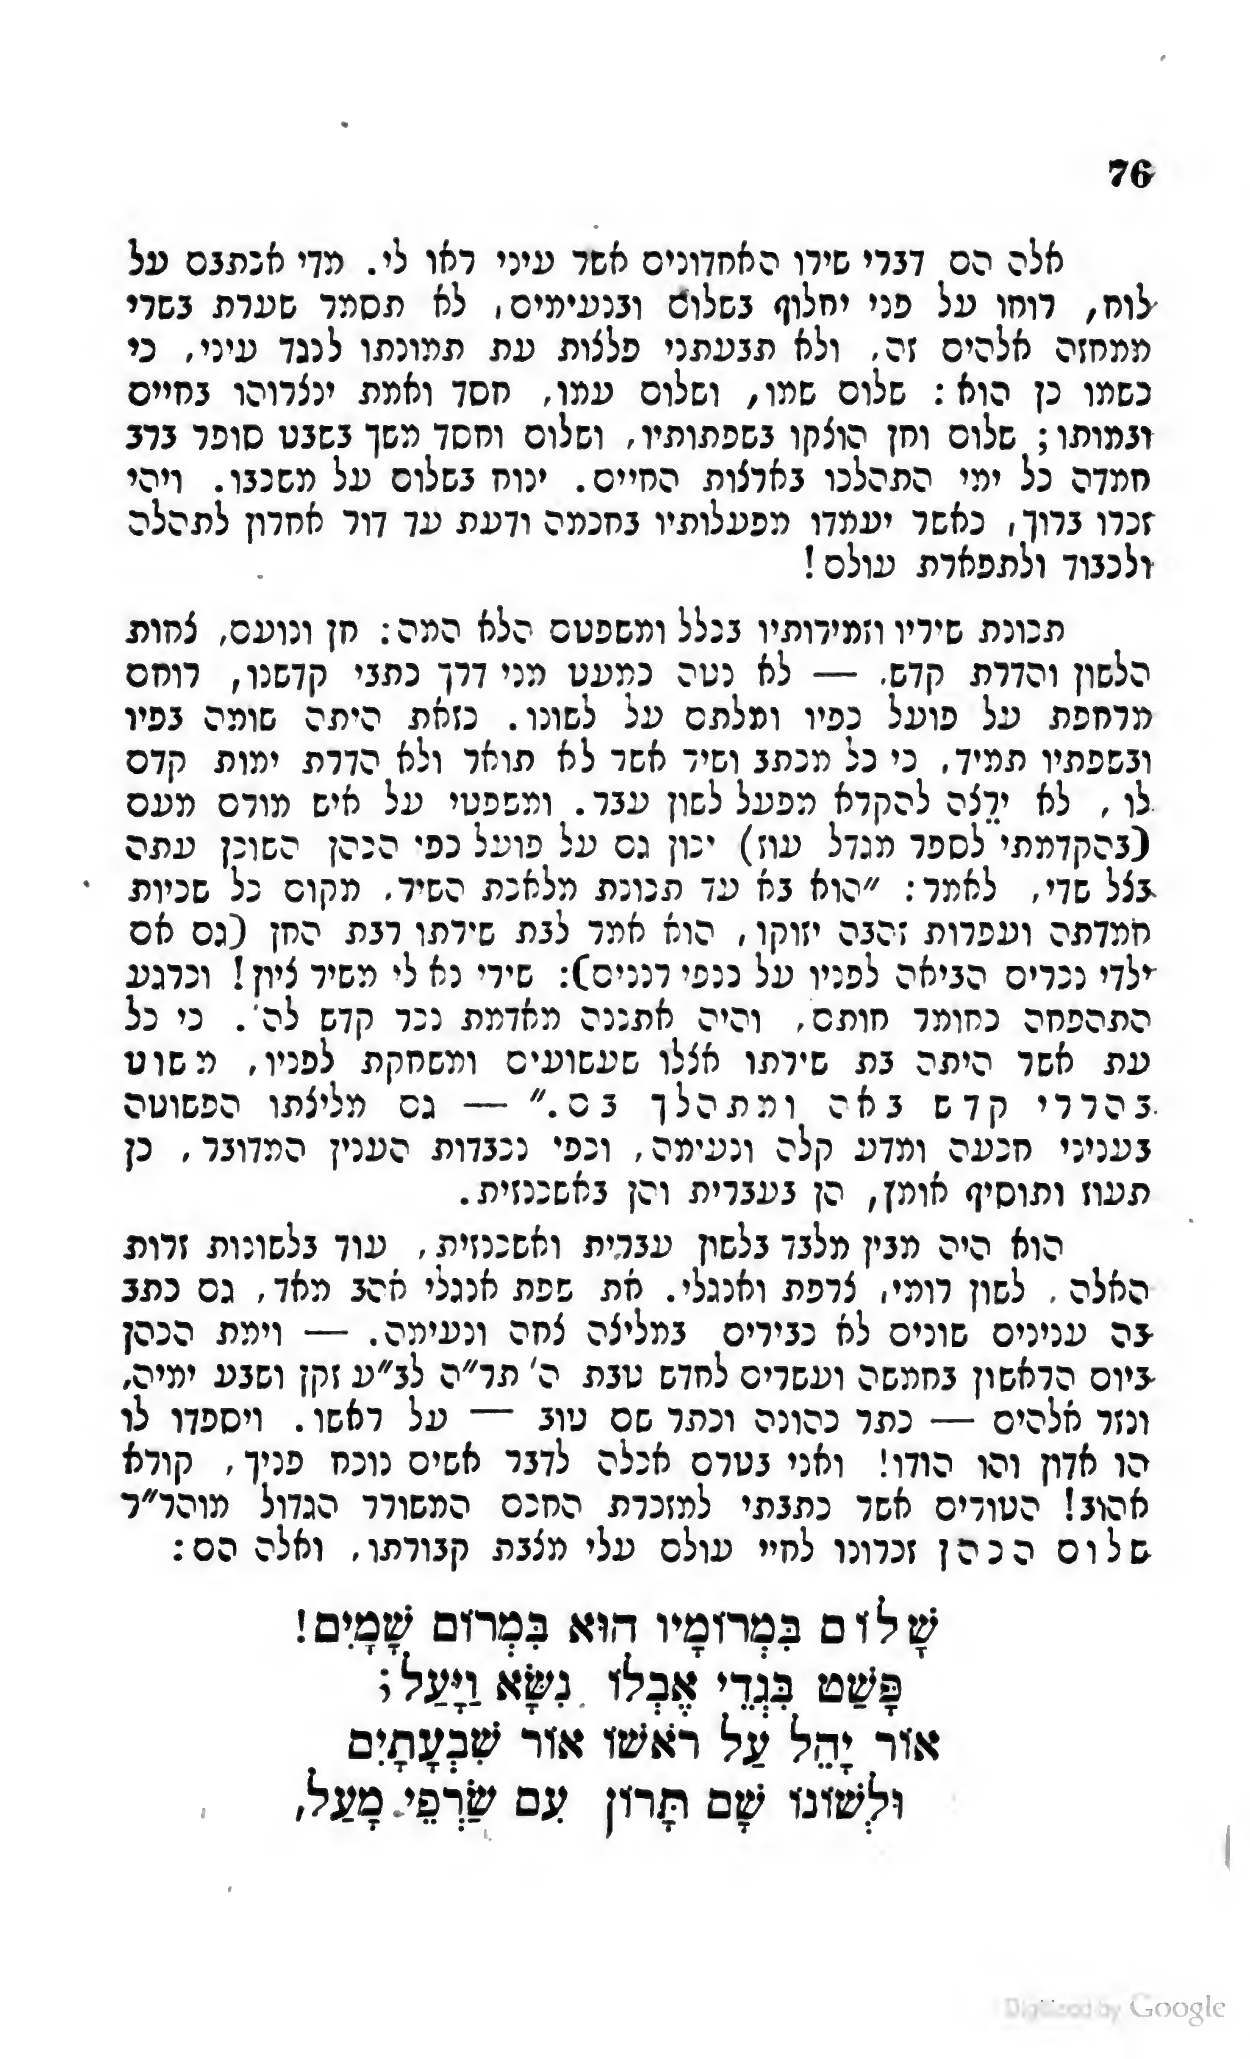 76
אלה הם דברי שירו האחרונים אשר עיני ראו לי. מדי אכתבם על
לוח, רוחו על פני יחלוף בשלום ובנעימים, לא תסמר שערת בשרי
ממחזה אלהים זה, ולא תבעתני פלצות עת תמונתו לנגד עיני, כי
כשמו כן הוא: שלום שמו, ושלום עמו, חסד ואמת ינצרוהו בחיים
ובמותו; שלום וחן הוצקו בשפתותיו, ושלום וחסד משך בשבט סופר ברב
חמדה כל ימי התהלכו בארצות החיים. ינוח בשלום על משכבו. ויהי
זכרו ברוך, כאשר יעמדו מפעלותיו בחכמה ודעת עד דור אחרון לתהלה
ולכבוד ולתפארת עולם!
תכונת שיריו וזמירותיו בכלל ומשפטם הלא המה: חן ונועם, צחות
הלשון והדרת קדש. — לא נטה כמעט מני דרך כתבי קדשנו, רוחם
מרחפת על פועל כפיו ומלתם על לשונו. כזאת היתה שומה בפיו
ובשפתיו תמיד, כי כל מכתב ושיר אשר לא תואר ולא הדרת ימות קדם
לו, לא ירצה להקרא מפעל לשון עבר. ומשפטי על איש מורם מעם
(בהקדמתי לספר מגדל עוז) יכון גם על פועל כפי הכהן השוכן עתה
בצל שדי, לאמר: "הוא בא עד תכונת מלאכת השיר, מקום כל שכיות
חמדתה ועפרות זהבה יזוקו, הוא אמר לבת שירתו רבת החן (גם אם
ילדי נכרים הביאה לפניו על כנפי רננים): שירי נא לי משיר ציון! וכרגע
התהפכה כחומר חותם, והיה אתננה מאדמת נכר קדש לה'. כי כל
עת אשר היתה בת שירתו אצלו שעשועים ומשחקת לפניו, משוט
בהררי קדש באה ומתהלך בם." — גם מליצתו הפשוטה
בעניני חכמה ומדע קלה ונעימה, וכפי נכבדות הענין המדובר, כן
תעוז ותוסיף אומץ, הן בעברית והן באשכנזית.
הוא היה מבין מלבד בלשון עברית ואשכנזית, עוד בלשונות זרות
האלה, לשון רומי, צרפת ואנגלי. את שפת אנגלי אהב מאד, גם כתב
בה ענינים שונים לא כבירים במליצה צחה ונעימה. — וימת הכהן
ביום הראשון בחמשה ועשרים לחדש טבת ה' תר"ה לב"ע זקן ושבע ימיה,
ונזר אלהים — כתר כהונה וכתר שם טוב — על ראשו. ויספדו לו
הו אדון והו הודו! ואני בטרם אכלה לדבר אשים נוכח פניך, קורא
אהוב! הטורים אשר כתבתי למזכרת החכם המשורר הגדול מוהר"ר
שלום הכהן זכרונו לחיי עולם עלי מצבת קבורתו, ואלה הם:
שָׁלוֹם בִּמְרוֹמָיו הוּא בִּמְרוֹם שָׁמָיִם!
פָּשַׁט בִּגְדֵי אֶבְלוֹ נִשָּׂא וַיָּעַל;
אוֹר יָהֵל עַל רֹאשׁוֹ אוֹר שִׁבְעָתָיִם
וּלְשׁוֹנוֹ שָׁם תָּרוֹן עִם שַׂרְפֵי מָעַל,
Digitized by Google